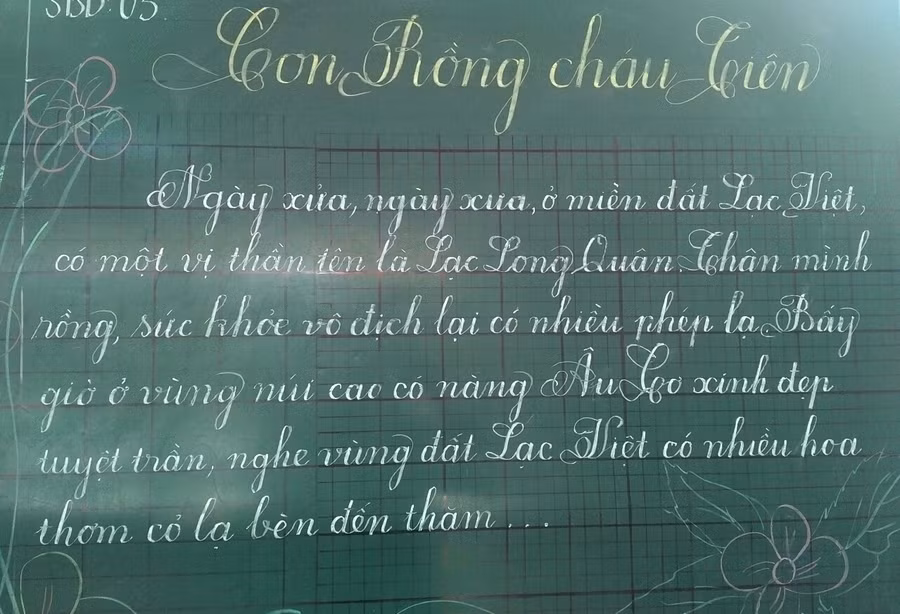 SBD: 05.
Con Rồng cháu Tiên
Ngày xửa, ngày xưa, ở miền đất Lạc Việt,
có một vị thần tên là Lạc Long Quân. Thân mình
rồng, sức khỏe vô địch lại có nhiều phép lạ. Bấy
giờ ở vùng núi cao có nàng Âu Cơ xinh đẹp
tuyệt trần, nghe vùng đất Lạc Việt có nhiều hoa
thơm cỏ lạ bèn đến thăm...